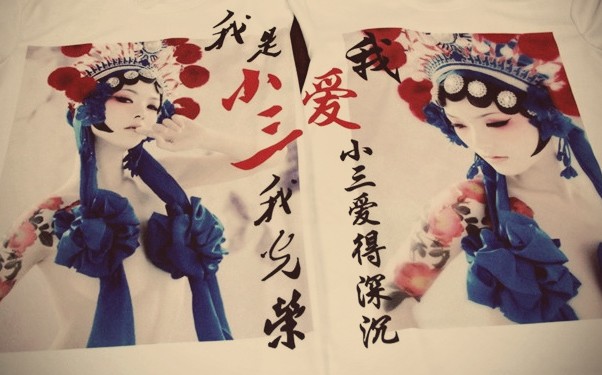 我是小三我光榮
我愛小三愛得深沉